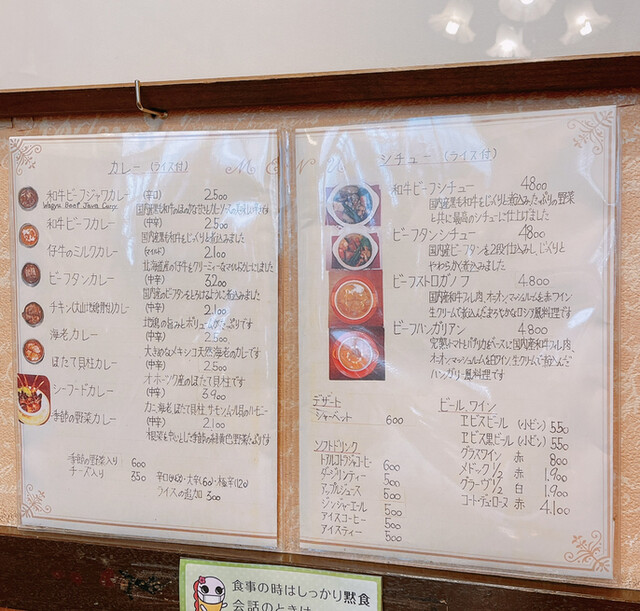 MENU
カレー (ライス付)
和牛ビーフジャワカレー (辛口) 2.500
Wagyu Beef Java Curry
和牛ビーフカレー (中辛) 2.500
国内産黒毛和牛をじっくりと煮込みました
仔牛のミルクカレー (マイルド) 2.100
北海道産の仔牛をクリーミーなマイルドカレーにしました
ビーフタンカレー (中辛) 3.200
国内産のビーフタンをとろけるように煮込みました
チキン(大山地鶏骨付)カレー (中辛) 2.100
地鶏の旨みとボリュームたっぷりです
海老カレー (中辛) 2.500
大きめなメキシコ天然海老のカレーです
ほたて貝柱カレー (中辛) 2.100
オホーツク産のほたて貝柱です
シーフードカレー (中辛) 3.900
季節の野菜カレー (中辛) 2.100
季節の野菜入り 600
チーズ入り 350
辛口(40) 大辛(60) 極辛(120)
ライスの追加 300
シチュー (ライス付)
和牛ビーフシチュー 4.800
国内産黒毛和牛をじっくりと煮込みたっぷりの野菜
と共に最高のシチューに仕上げました
ビーフタンシチュー 4.800
国内産ビーフタンを2段仕込みし じっくりと
やわらかく煮込みました
ビーフストロガノフ 4.800
国内産和牛フィレ肉、オニオン、マッシュルームを赤ワイン
生クリームで煮込んだまろやかなロシア風料理です
ビーフハンガリアン 4.800
完熟トマトとパプリカをベースに国内産和牛フィレ肉、
オニオン、マッシュルームを白ワイン、生クリームで煮込んだ
ハンガリー風料理です
デザート
シャーベット 600
ソフトドリンク
トアルコトラジャコーヒー 600
ダージリンティー 500
アップルジュース 500
ジンジャーエール 500
アイスコーヒー 500
アイスティー 500
ビール、ワイン
エビスビール (小ビン) 550
エビス黒ビール (小ビン) 550
グラスワイン 赤 800
メドック 1/2 赤 1.900
グラーヴ 1/2 白 1.900
コート・デュ・ローヌ 赤 4.100
食事の時はしっかり黙食
会話のときは